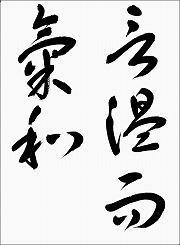 言温而
氣和